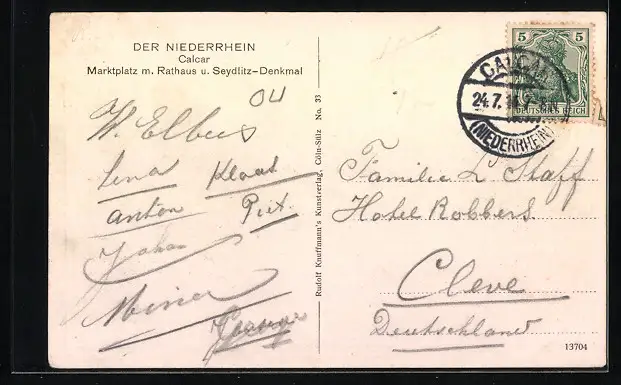 DER NIEDERRHEIN
Calcar
Marktplatz m. Rathaus u. Seydlitz-Denkmal
04
W. Elbers
Lena Klaas
Anton Piet
Johan
Mina
George
Rudolf Knuffmann's Kunstverlag, Cöln-Sülz No. 33
5 5
DEUTSCHES REICH
CALCAR
24.7.
(NIEDERRHEIN)
Familie L Staff
Hotel Robbers.
Cleve
Deutschland
13704